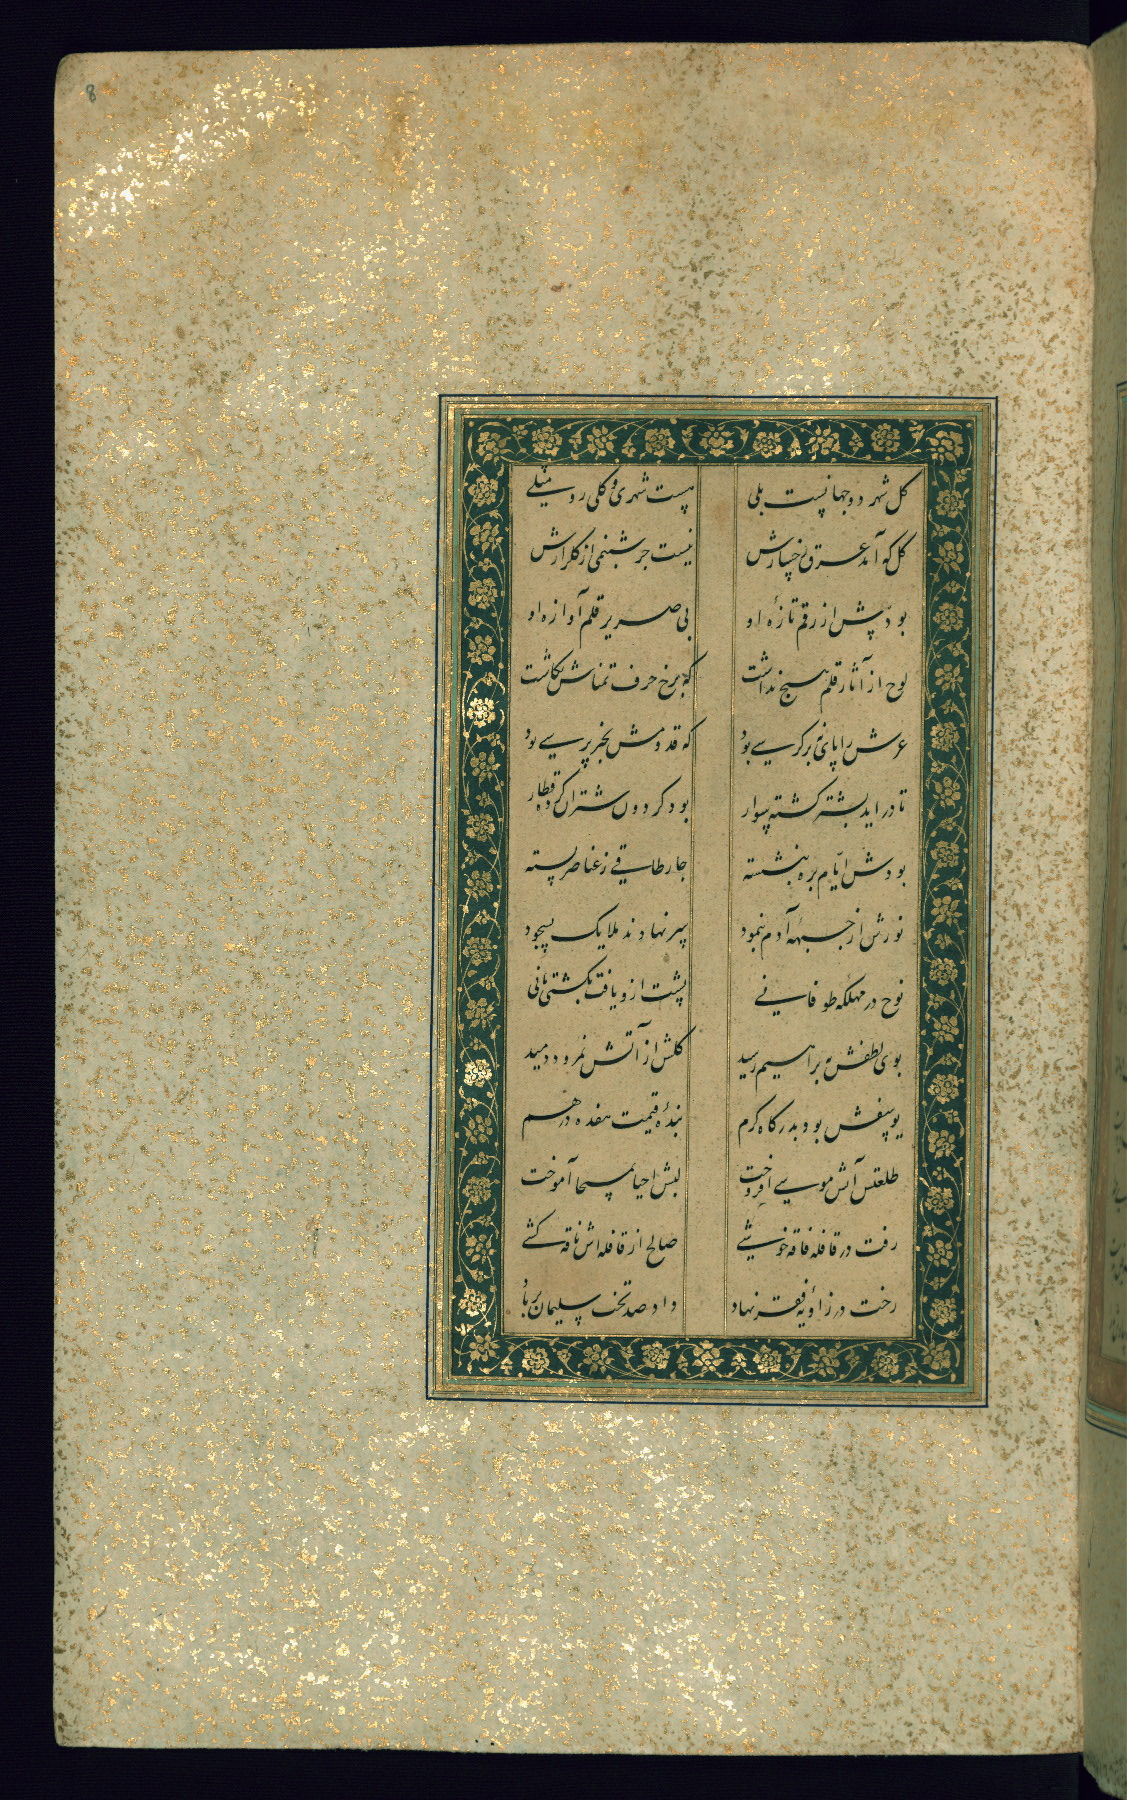 8
گل شهر دو جهانست بلی
هست شهری و گلی رد میلی
گل که آمد عرق رخسارش
نیست جز شبنمی از گلزارش
بود پیش از رقم تازهٔ او
بی صریر قلم آوازه او
لوح از آثار قلم هیچ نداشت
که برخ حرف تمناش نگاشت
عرش را پای نه بر کرسی بود
که قدومش بخبر پرسی بود
تا در اید بشتر گشته سوار
بود گردون شتران کرده قطار
بودش ایام بره بنشسته
چارطاقی ز عناصر بسته
نورش از جبههٔ آدم بنمود
سر نهادند ملایک بسجود
نوح در مهلکهٔ طوفانی
پشت ازو یافت بکشتی بانی
بوی لطفش به براهیم رسید
گلش از آتش نمرود دمید
یوسفش بود بدرگاه کرم
بندهٔ قیمت هفده درهم
طلعتش آتش موسی افروخت
لبش احیا بمسیحا آموخت
رفت در قافله فاقه خوشی
صالح از قافله‌اش ناقه کشی
رخت در زاویهٔ فقر نهاد
داد صد تخت سلیمان بر باد